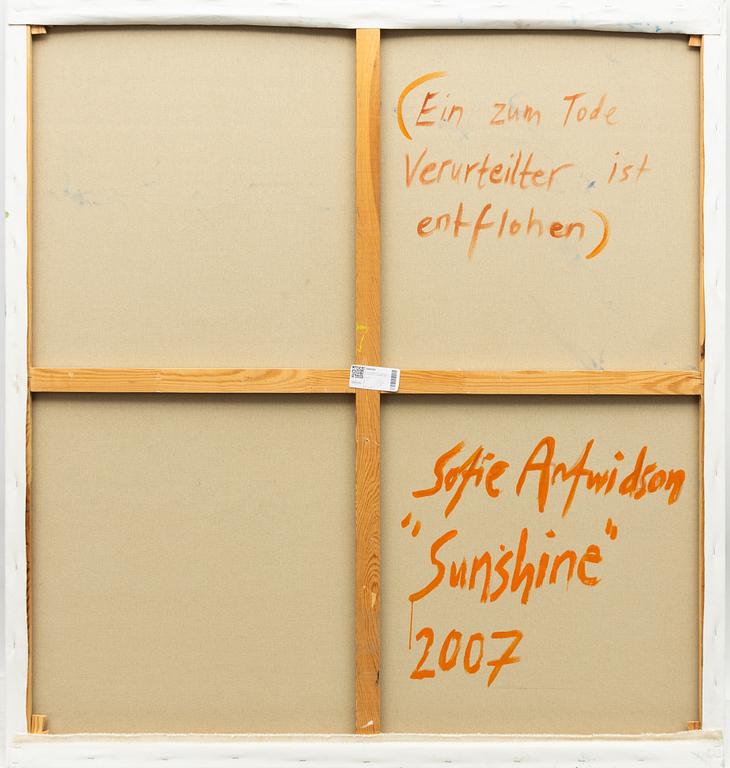 (Ein zum Tode
Verurteilter ist
entflohen)
7
Sofie Arfwidson
"Sunshine"
2007